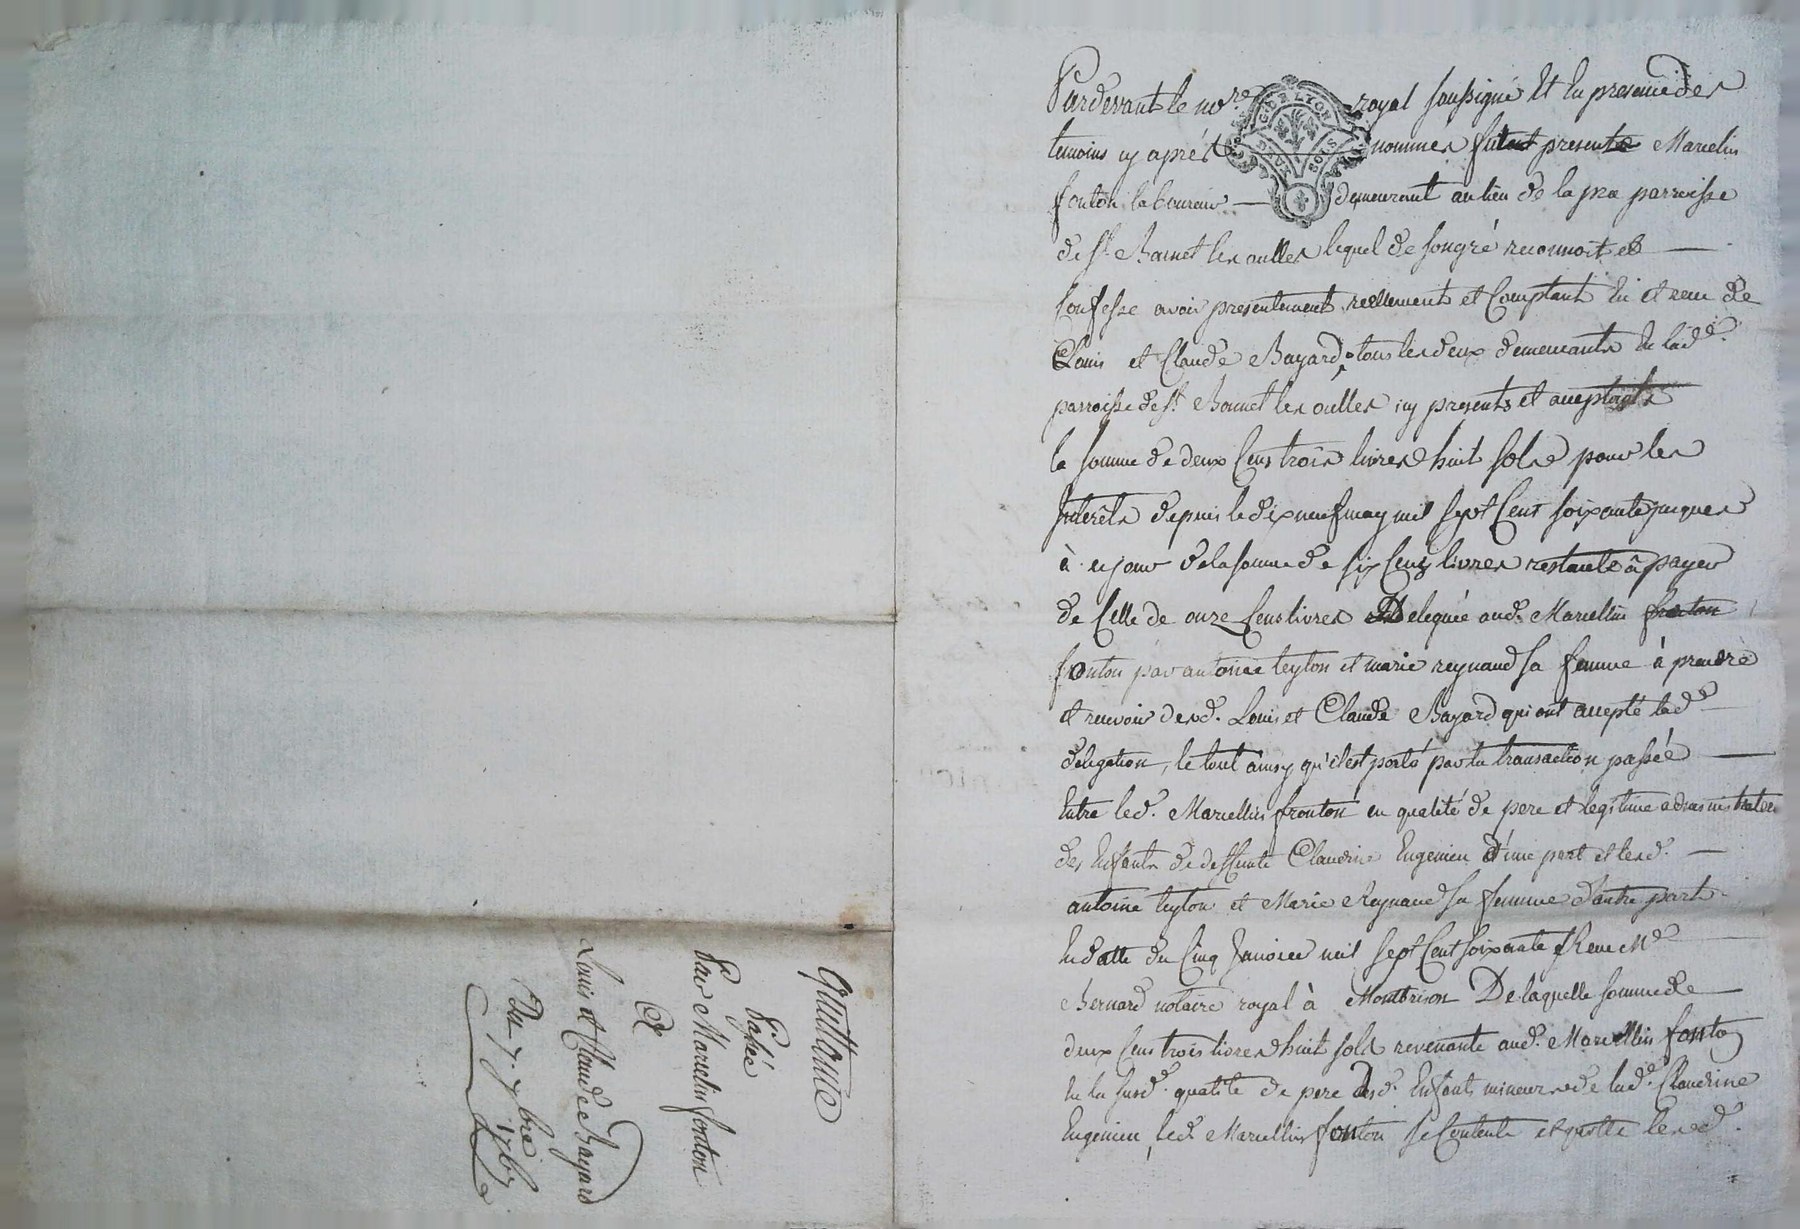 quittance
Passé
Par Marcelin fonton
A
Louis et Claude Bayard
Du 7. 7bre 1767
Pardevant le nore royal soussigné Et En presence des
temoins cy après nommés fut present Marcelin
fonton laboureur — demeurant au lieu de la pra parroisse
de st. Bonnet les oulles lequel de son gré reconnoit et —
Confesse avoir presentement reellement et Comptant Eu et receu de
Louis et Claude Bayard tous les deux demeurants En lad.e
parroisse de st Bonnet les oulles icy presents et acceptants
la somme de deux Cens trois livres huit sols pour les
Interêts depuis le dix neuf may mil sept Cent soixante jusques
à ce jour de la somme de six Cens livres restante à payer
de Celle de onze Cens livres Deleguée aud. Marcellin fronton
fonton par antoine teyton et marie reynaud sa femme à prendre
et recevoir desd. Louis et Claude Bayard qui ont accepté lad.e
delegation, le tout ainsy qu'il est porté par la transaction passée —
Entre led. Marcellin fronton en qualité de pere et legitime administrateur
des Enfants de deffunte Claudine Eugenieu d'une part et lesd. —
antoine teyton et Marie Reynaud sa femme d'autre part
En datte du Cinq Janvier mil sept Cent soixante Receue Me
Bernard notaire royal à Montbrison De laquelle somme de
deux Cens trois livres huit sols revenante aud. Marcellin fonton
En la susd.e qualité de pere desd. Enfants mineurs de lad.e Claudine
Eugenieu, led. Marcellin fonton se Contente et quitte lesd.
GEN. DE LYON
DEUX SOLS